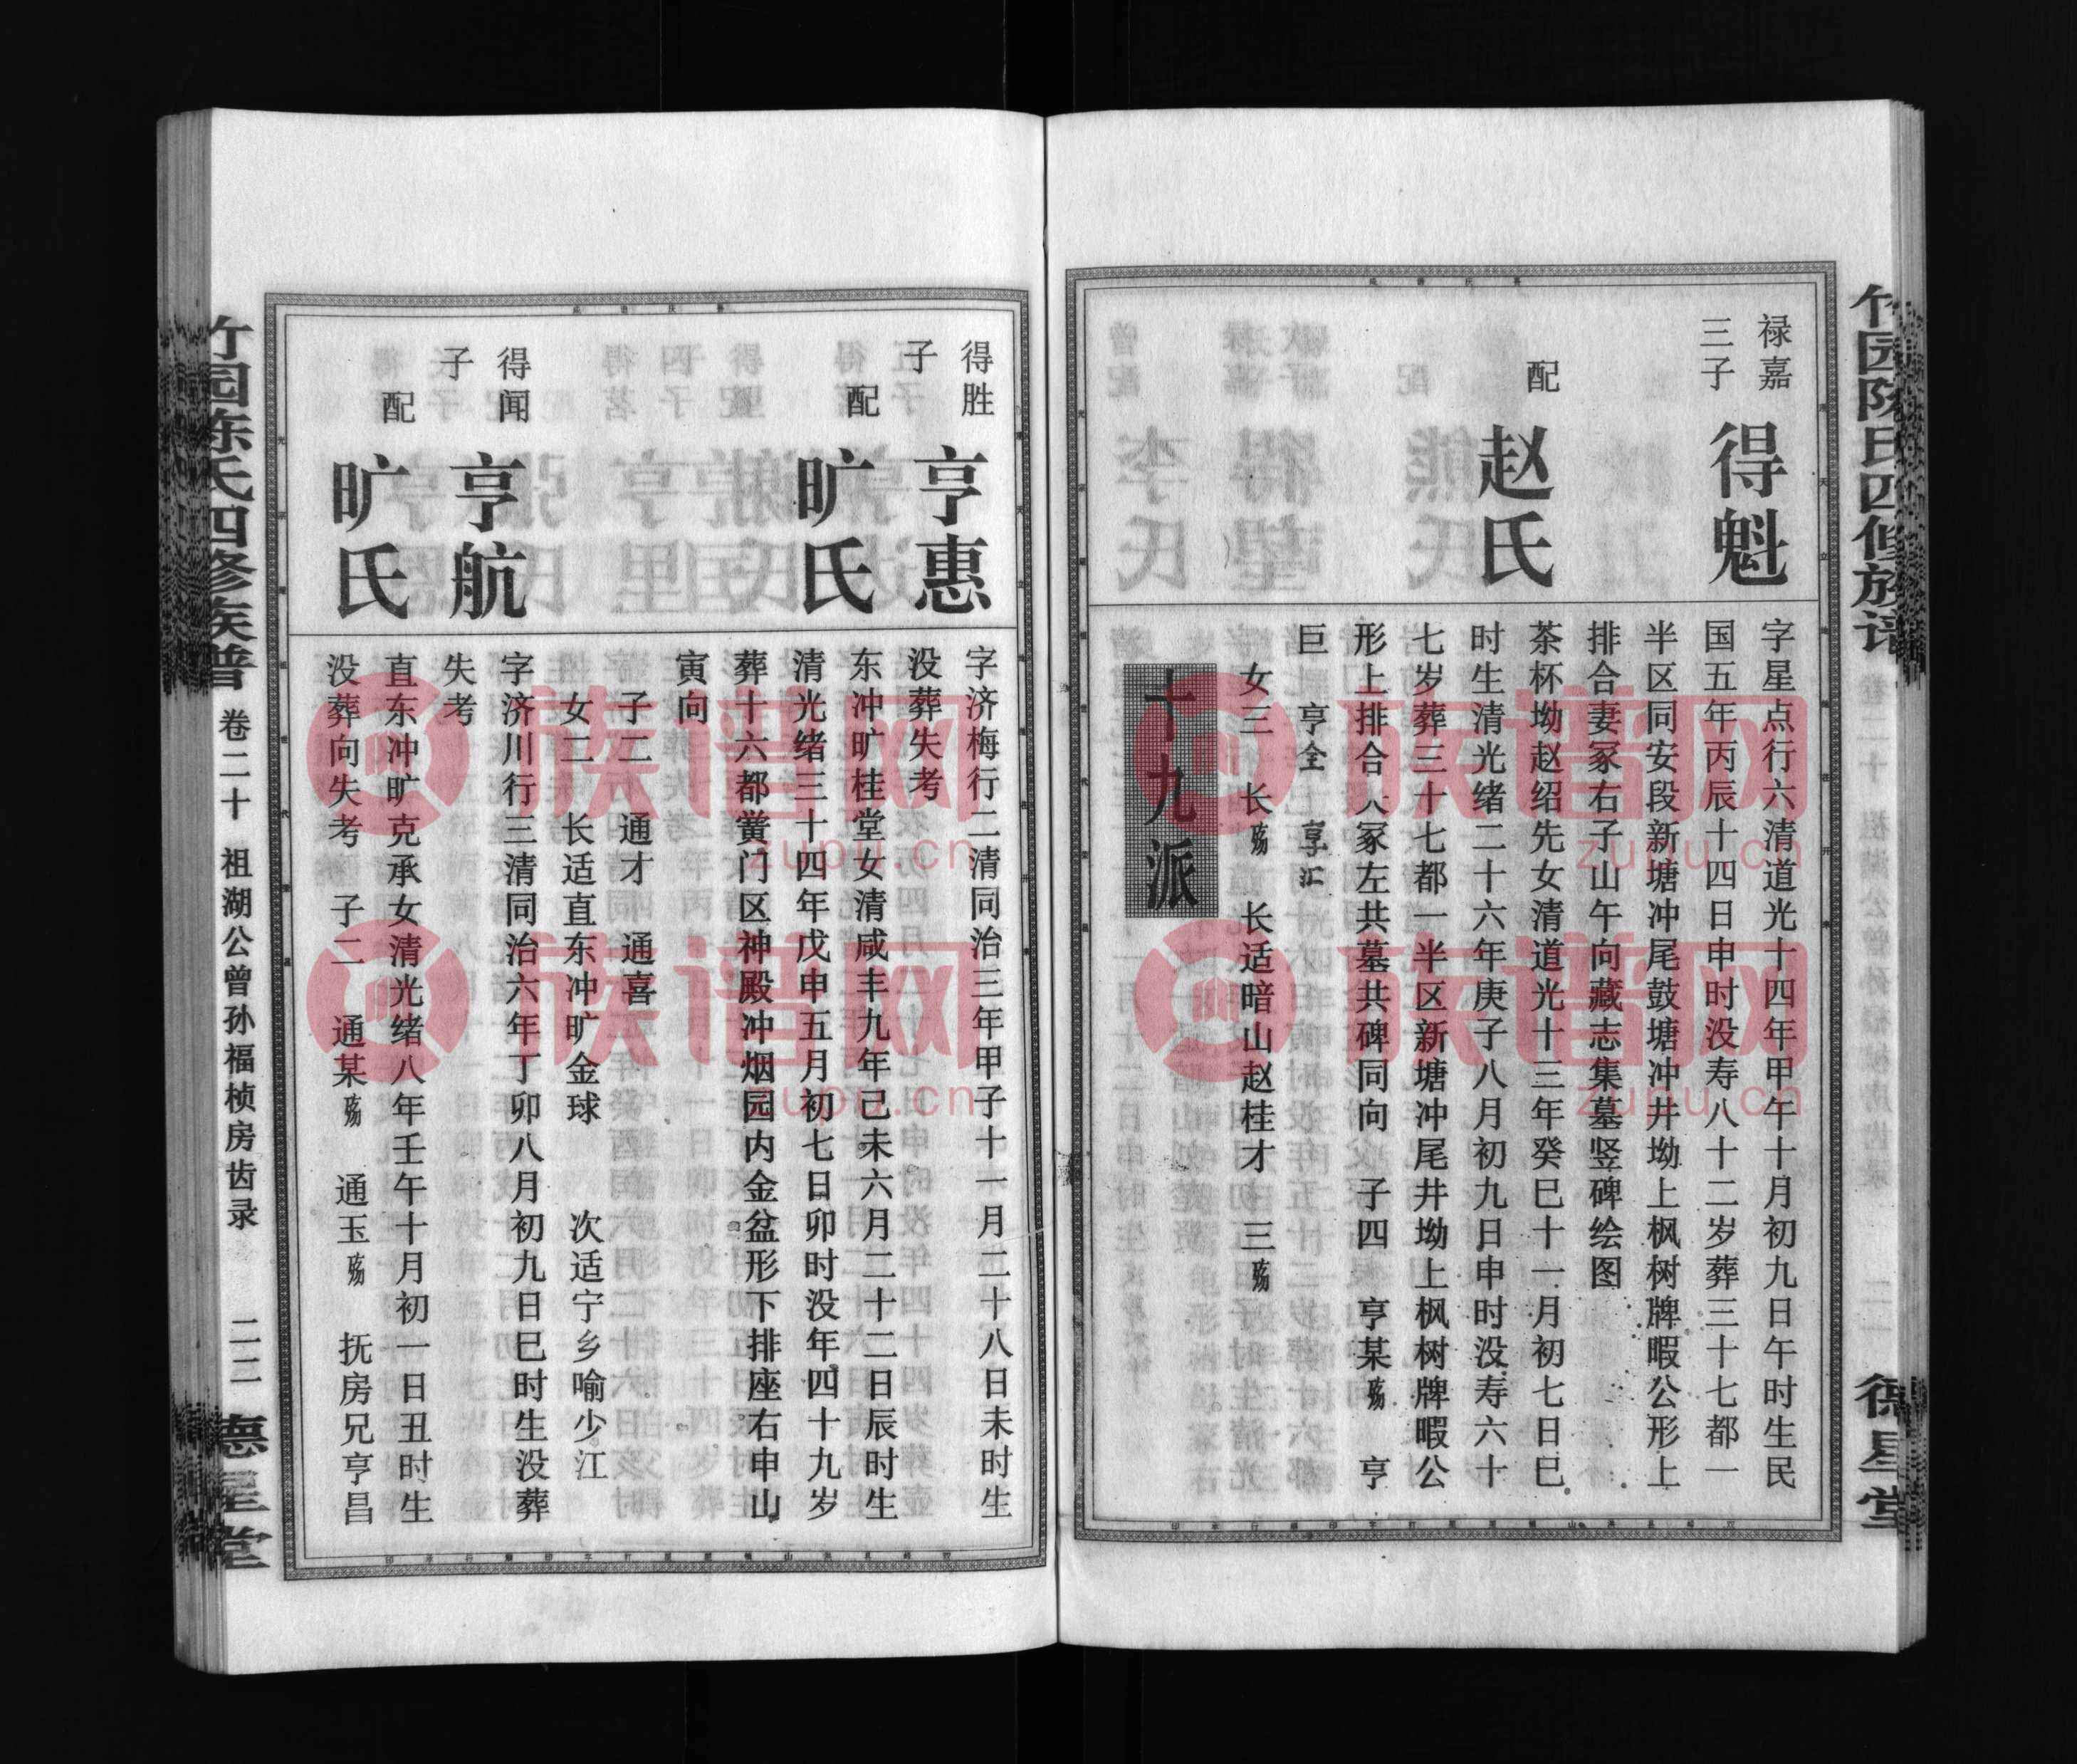 竹园陈氏四修族谱
德星堂
禄嘉
三子
得魁
字星点行六清道光十四年甲午十月初九日午时生民
国五年丙辰十四日申时没寿八十二岁葬三十七都一
半区同安段新塘冲尾鼓塘冲井坳上枫树牌暇公形上
排合妻冢右子山午向藏志集墓竖碑绘图
配
赵氏
茶杯坳赵绍先女清道光十三年癸巳十一月初七日巳
时生清光绪二十六年庚子八月初九日申时没寿六十
七岁葬三十七都一半区新塘冲尾井坳上枫树牌暇公
形上排合冢左共墓共碑同向 子四 亨某殇 亨
巨 亨全 享汇
女三 长殇 长适暗山赵桂才 三殇
十九派
得胜
子
亨惠
字济梅行二清同治三年甲子十一月二十八日未时生
没葬失考
配
旷氏
东冲旷桂堂女清咸丰九年己未六月二十二日辰时生
清光绪三十四年戊申五月初七日卯时没年四十九岁
葬十六都黉门区神殿冲烟园内金盆形下排座右申山
寅向
子二 通才 通喜
女二 长适直东冲旷金球 次适宁乡喻少江
得闻
子
亨航
字济川行三清同治六年丁卯八月初九日巳时生没葬
失考
配
旷氏
直东冲旷克承女清光绪八年壬午十月初一日丑时生
没葬向失考 子二 通某殇 通玉殇 抚房兄亨昌
竹园陈氏四修族谱 卷二十 祖湖公曾孙福桢房齿录 二二 德星堂
族谱网
zupu.cn
族谱网
zupu.cn
族谱网
zupu.cn
族谱网
zupu.cn